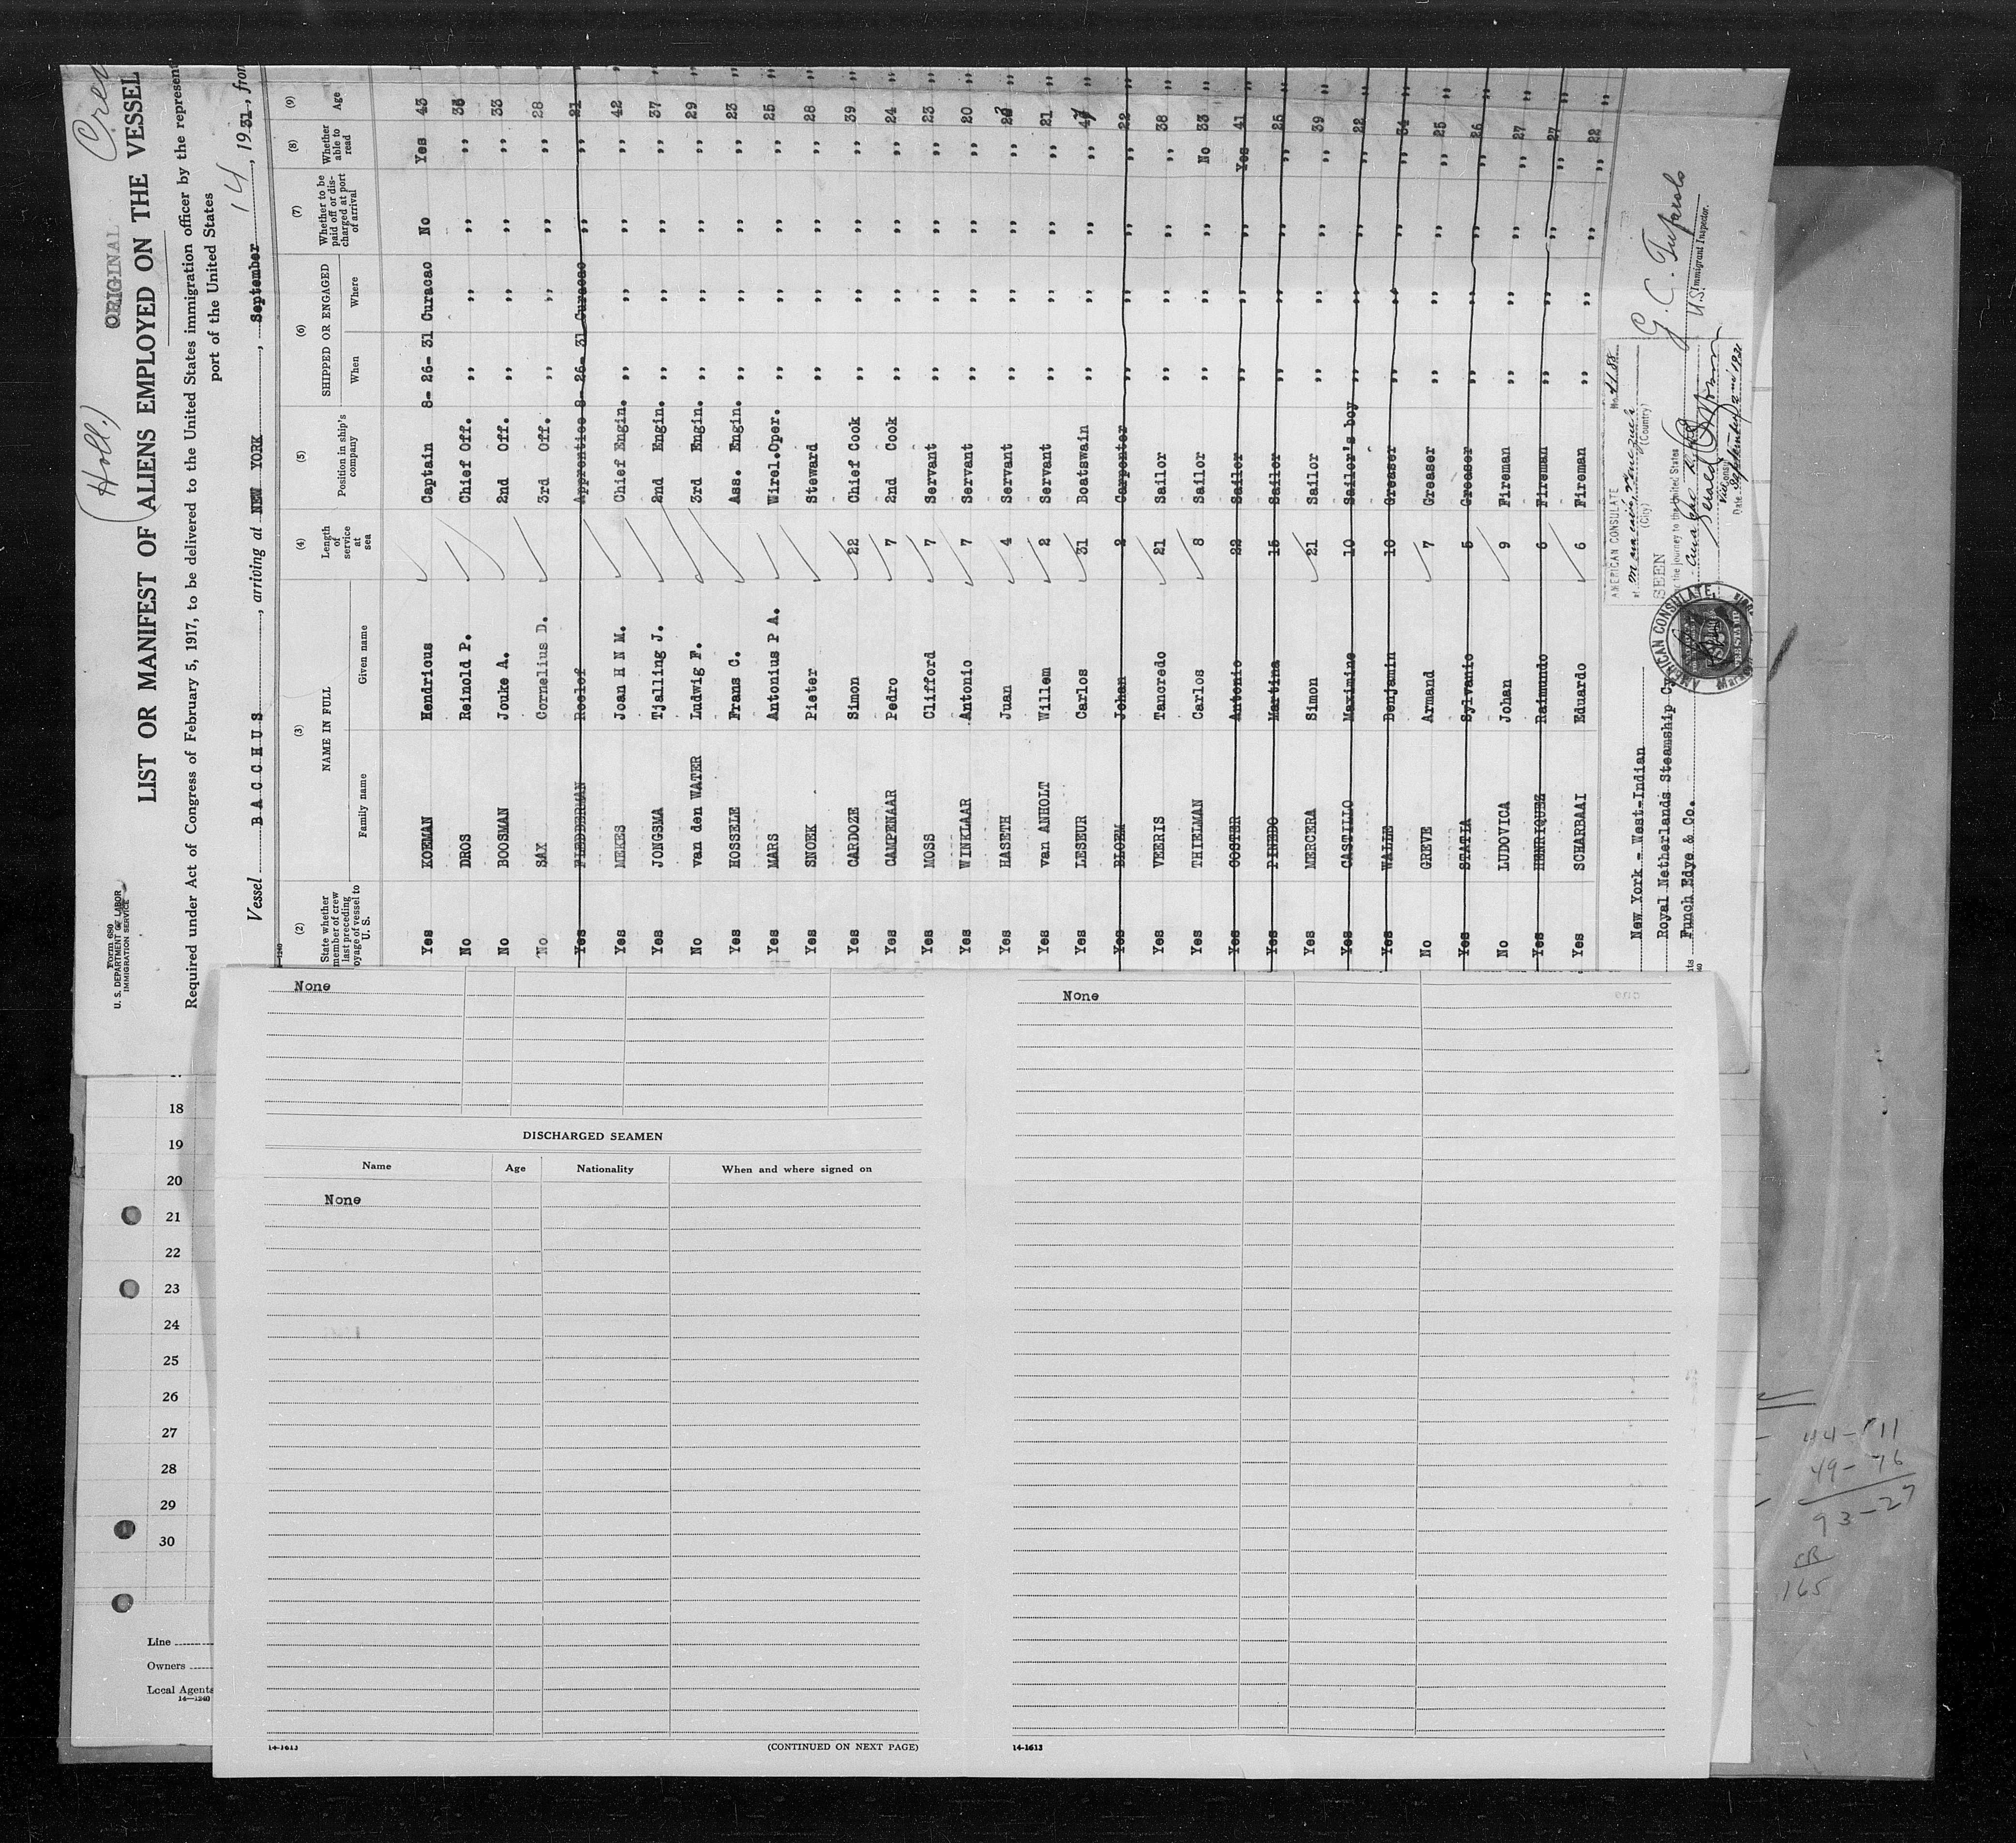 (Holl.) ORIGINAL Crew
Form 680
U. S. DEPARTMENT OF LABOR
IMMIGRATION SERVICE
LIST OR MANIFEST OF ALIENS EMPLOYED ON THE VESSEL
Required under Act of Congress of February 5, 1917, to be delivered to the United States immigration officer by the represent
port of the United States
Vessel BACCHUS, arriving at NEW YORK, September 14, 1931, from
(2) (3) (4) (5) (6) (7) (8) (9)
State whether member of crew last preceding voyage of vessel to U. S. NAME IN FULL Family name Given name Length of service at sea Position in ship's company SHIPPED OR ENGAGED When Where Whether to be paid off or discharged at port of arrival Whether able to read Age
Yes KOEMAN Hendricus Captain 8- 26- 31 Curacao No Yes 43
No DROS Reinold P. Chief Off. ,, ,, ,, ,,
No BOOSMAN Jouke A. 2nd Off. ,, ,, ,, ,, 33
No SAX Cornelius D. 3rd Off. ,, ,, ,, ,, 28
Yes FLEDDERMAN Roelof Apprentice 8- 26- 31 Curacao ,, ,, 21
Yes MEKES Joan H N M. Chief Engin. ,, ,, ,, ,, 42
Yes JONGSMA Tjalling J. 2nd Engin. ,, ,, ,, ,, 37
No van den WATER Ludwig F. 3rd Engin. ,, ,, ,, ,, 29
Yes HOSSELE Frans C. Ass. Engin. ,, ,, ,, ,, 23
Yes MARS Antonius P A. Wirel.Oper. ,, ,, ,, ,, 25
Yes SNOEK Pieter Steward ,, ,, ,, ,, 28
Yes CARDOZE Simon 22 Chief Cook ,, ,, ,, ,, 39
Yes CAMPENAAR Pedro 7 2nd Cook ,, ,, ,, ,, 24
Yes MOSS Clifford 7 Servant ,, ,, ,, ,, 23
Yes WINKLAAR Antonio 7 Servant ,, ,, ,, ,, 20
Yes HASETH Juan 4 Servant ,, ,, ,, ,,
Yes van ANHOLT Willem 2 Servant ,, ,, ,, ,, 21
Yes LESEUR Carlos 31 Boatswain ,, ,, ,, ,, 47
Yes BLOEM Johan 2 Carpenter ,, ,, ,, ,, 22
Yes VEERIS Tancredo 21 Sailor ,, ,, ,, ,, 38
Yes THIELMAN Carlos 8 Sailor ,, ,, ,, No 33
Yes OOSTER Antonio 22 Sailor ,, ,, ,, Yes 41
Yes PINEDO Martina 15 Sailor ,, ,, ,, ,, 25
Yes MERCERA Simon 21 Sailor ,, ,, ,, ,, 39
Yes CASTILLO Maximino 10 Sailor's boy ,, ,, ,, ,, 22
Yes WALLE Benjamin 10 Greaser ,, ,, ,, ,, 34
No GREVE Armand 7 Greaser ,, ,, ,, ,, 25
Yes STATIA Sylvanio 5 Greaser ,, ,, ,, ,, 26
No LUDOVICA Johan 9 Fireman ,, ,, ,, ,, 27
Yes HENRIQUEZ Raimundo 6 Fireman ,, ,, ,, ,, 27
Yes SCHARBAAI Eduardo 6 Fireman ,, ,, ,, ,, 22
New York - West-Indian
Royal Netherlands Steamship Cy
Funch Edye & Co.
AMERICAN CONSULATE No. 4188
at (City) (Country)
SEEN
the journey to the United States
Date September 2 1931
AMERICAN CONSULATE
U.S. Immigrant Inspector.
None
DISCHARGED SEAMEN
Name Age Nationality When and where signed on
None
14-1613 (CONTINUED ON NEXT PAGE)
None
14-1613
18
19
20
21
22
23
24
25
26
27
28
29
30
Line
Owners
Local Agents
14-1240
44-11
49-76
93-27
165